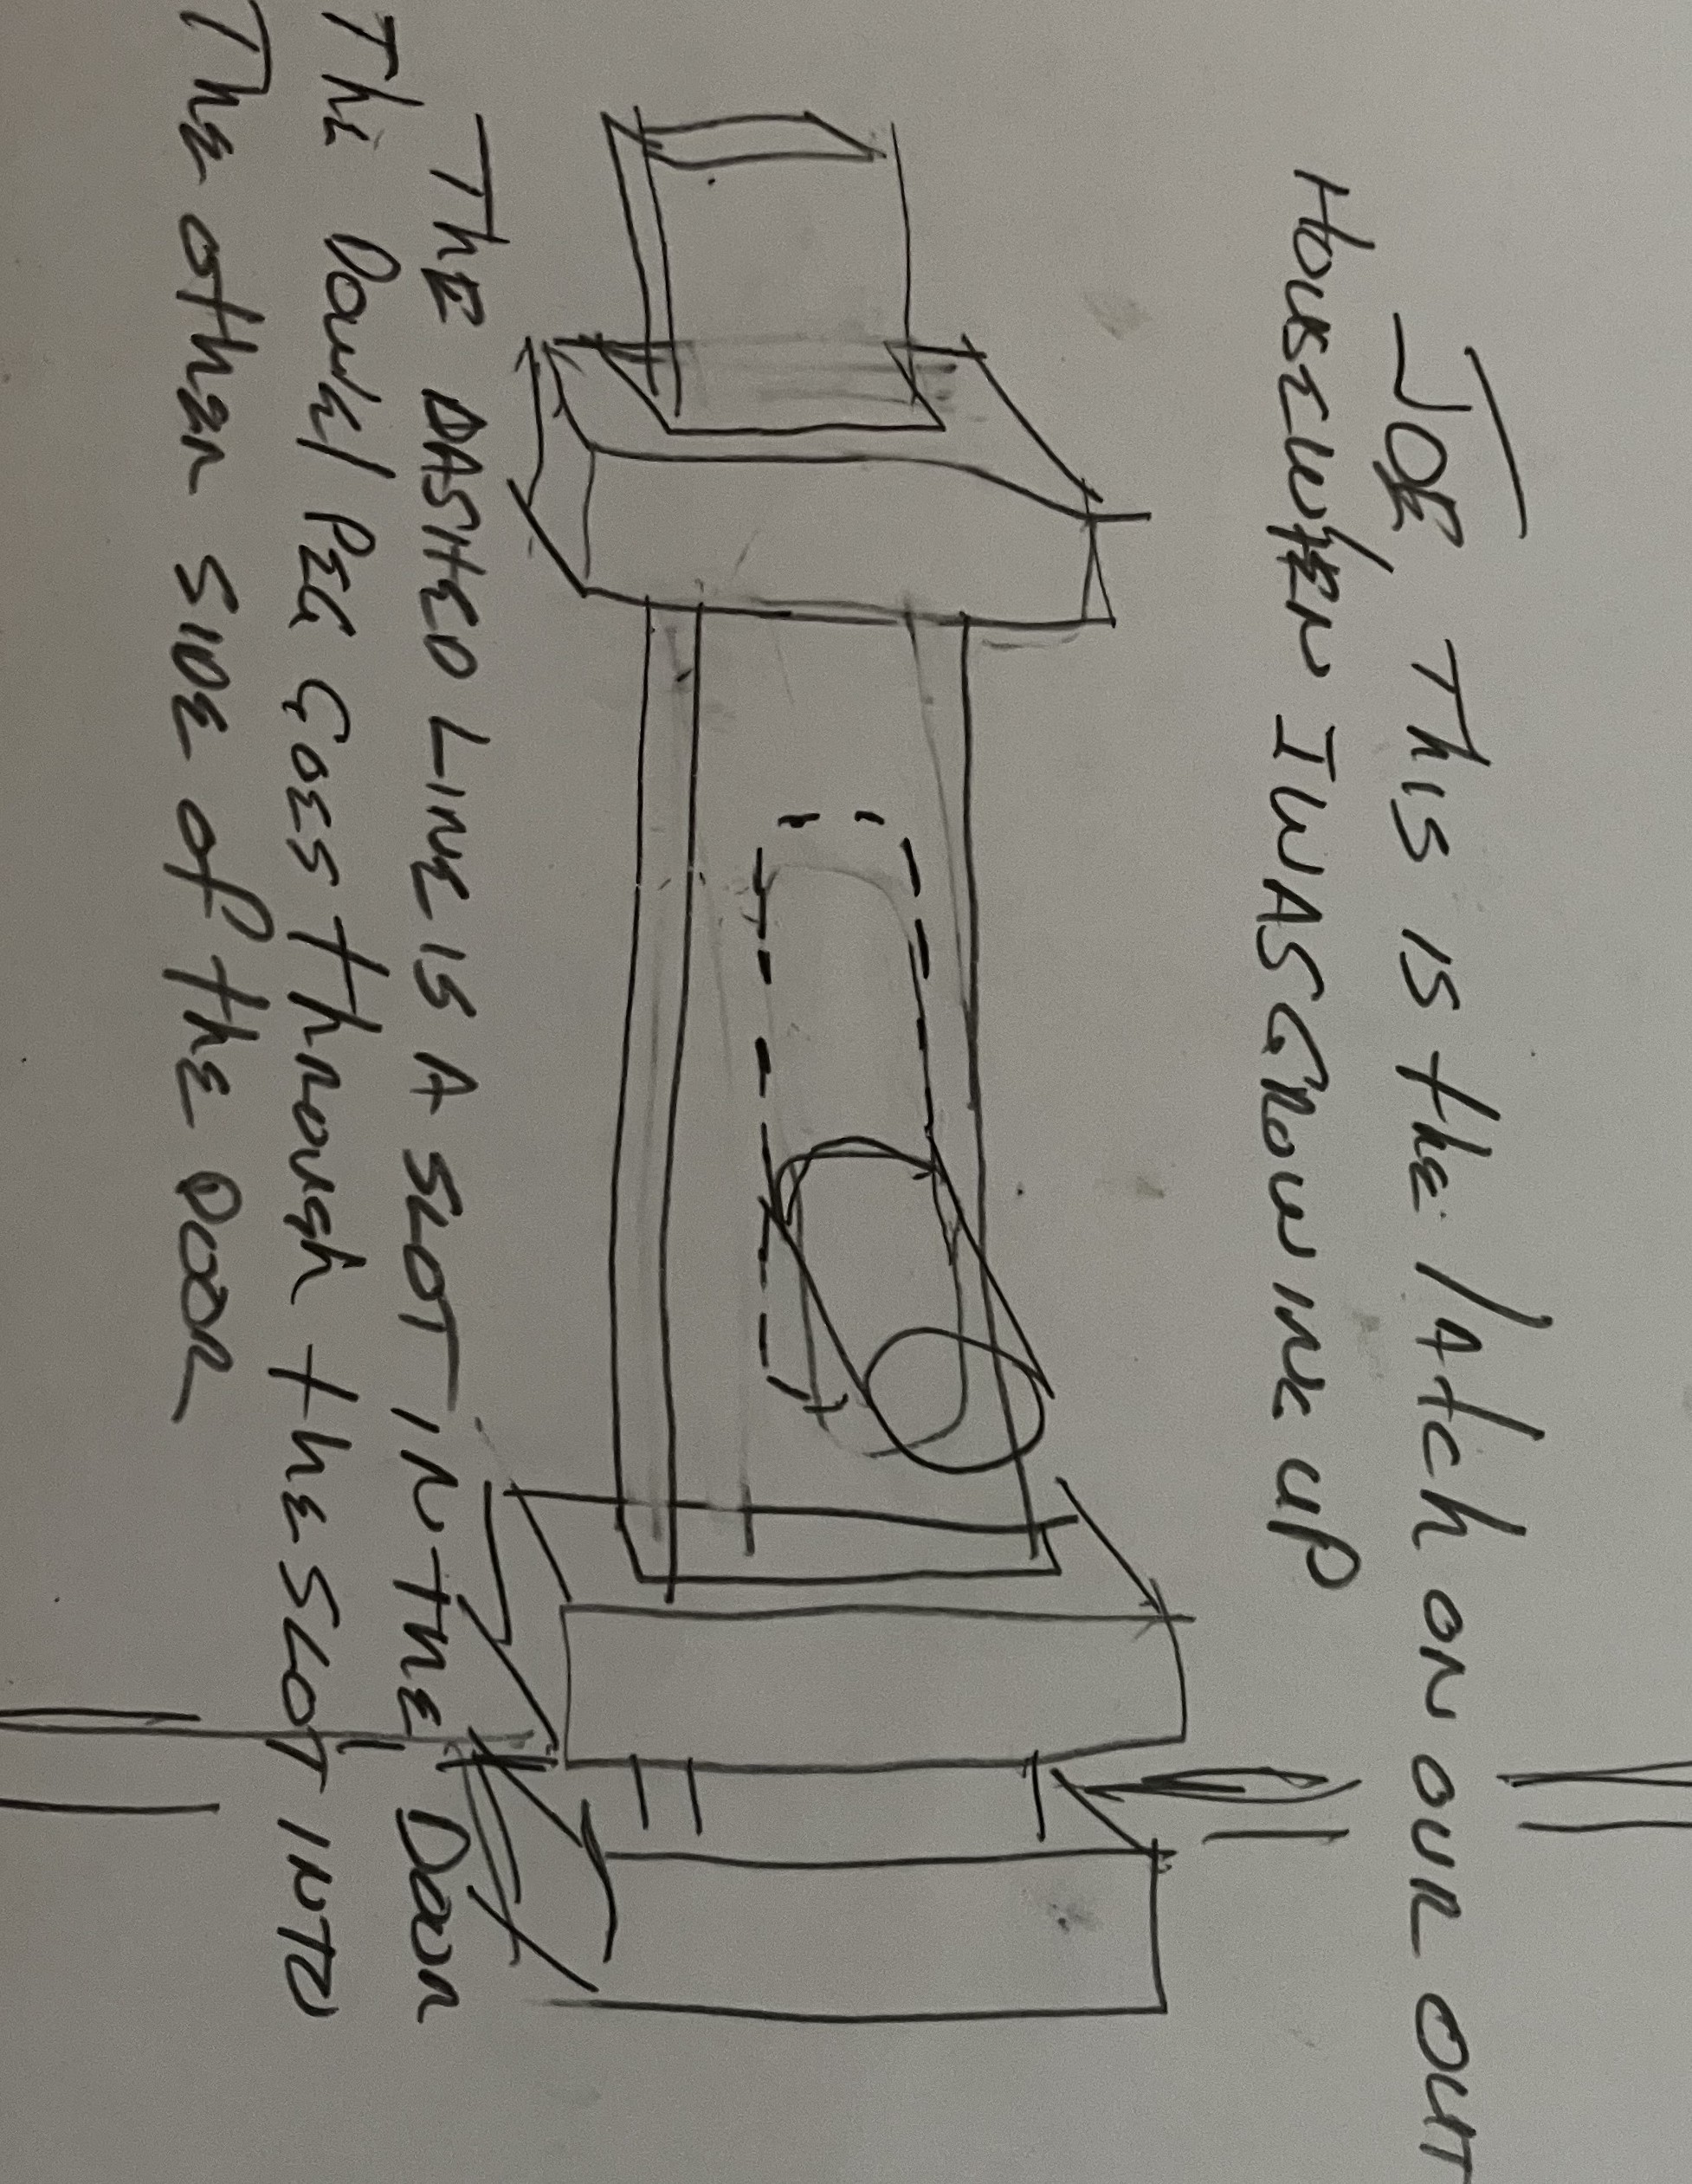 JOE THIS IS the lAtch ON OUR OUT
HOUSE WHEN I WAS GROWING UP
THE DASHED LINE IS A SLOT IN THE DOOR
The Dowel PEG GOES through the SLOT INTO
The other SIDE of the DOOR